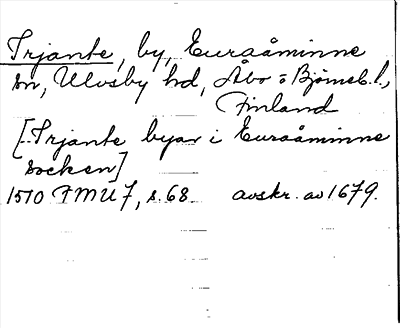 Irjante, by, Euraåminne
sn, Ulvsby hd, Åbo o Björneb. l.,
Finland
[-Irjante byar i Euraåminne
socken]
1510 FMU 7, s. 68. avskr. av 1679.